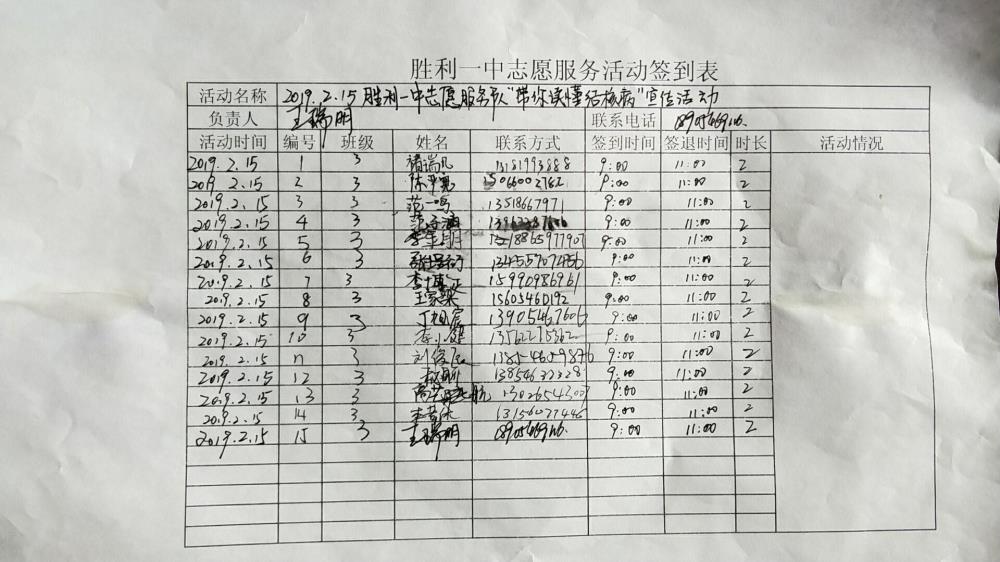 胜利一中志愿服务活动签到表
活动名称 2019.2.15 胜利一中志愿服务队"带你读懂结核病"宣传活动
负责人 王瑞明 联系电话
活动时间 编号 班级 姓名 联系方式 签到时间 签退时间 时长 活动情况
2019.2.15 1 3 褚瑞凡 13181993888 9:00 11:00 2
2019 2.15 2 3 9:00 11:00 2
2019.2.15 3 3 范一鸣 13518667971 9:00 11:00 2
2019.2.15 4 3 9:00 11:00 2
2019.2.15 5 3 18865977907 9:00 11:00 2
2019.2.15 6 3 9:00 11:00 2
2019.2.15 7 3 15990986961 9:00 11:00 2
2019.2.15 8 3 王家梁 15605460192 9:00 11:00 2
2019.2.15 9 3 13905467606 9:00 11:00 2
2019.2.15 10 3 9:00 11:00 2
2019.2.15 11 3 9:00 11:00 2
2019.2.15 12 3 9:00 11:00 2
2019.2.15 13 3 9:00 11:00 2
2019.2.15 14 3 13156077446 9:00 11:00 2
2019.2.15 15 3 王瑞明 9:00 11:00 2